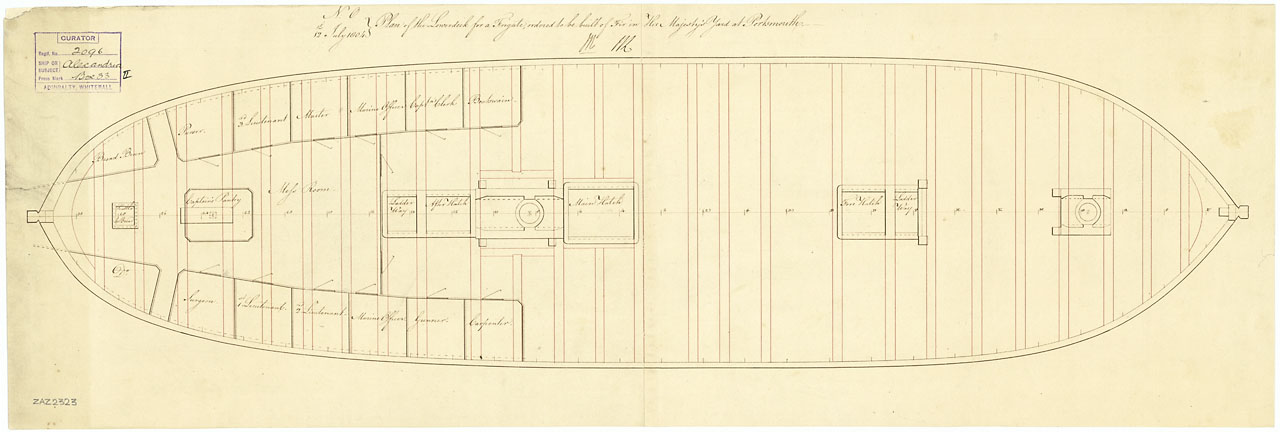 No 9
12 July 1804
Plan of the Lowerdeck for a Frigate, ordered to be built of Fir in His Majesty's Yard at Portsmouth
CURATOR
Regd. No. 2096
SHIP OR
SUBJECT Alexandria
Press Mark Box 33 II
ADMIRALTY, WHITEHALL
Purser
2nd Lieutenant
Master
Marine Officer
Capts. Clerk
Boatswain
Bread Room
Captain's Pantry
Mess Room
Ladder Way
After Hatch
Main Hatch
Fore Hatch
Ladder Way
Surgeon
1st Lieutenant
3rd Lieutenant
Marine Officer
Gunner
Carpenter
ZAZ2323